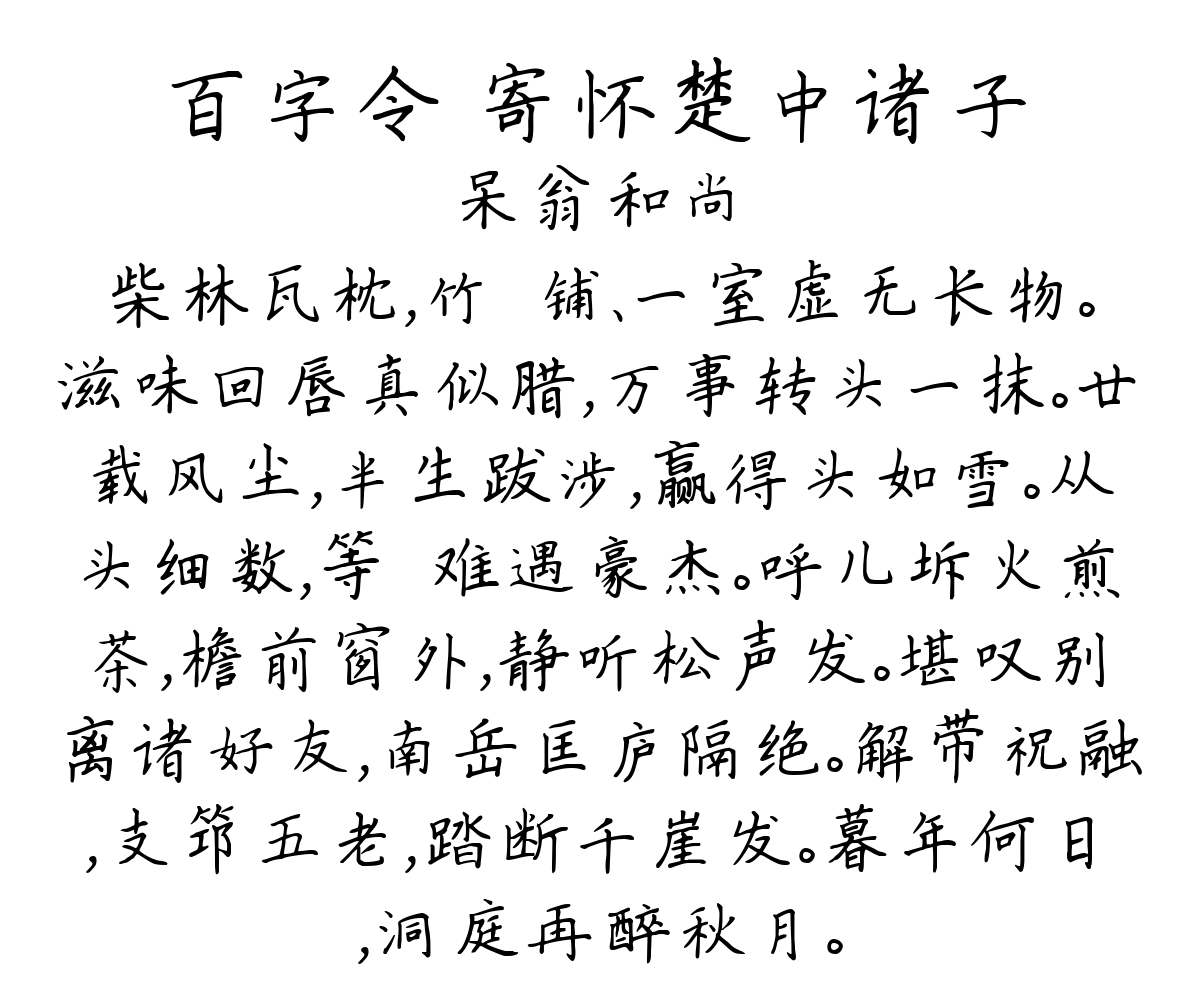 百字令 寄怀楚中诸子
呆翁和尚
柴林瓦枕,竹 铺、一室虚无长物。
滋味回唇真似腊,万事转头一抹。廿
载风尘,半生跋涉,赢得头如雪。从
头细数,等 难遇豪杰。呼儿坼火煎
茶,檐前窗外,静听松声发。堪叹别
离诸好友,南岳匡庐隔绝。解带祝融
,支筇五老,踏断千崖发。暮年何日
,洞庭再醉秋月。